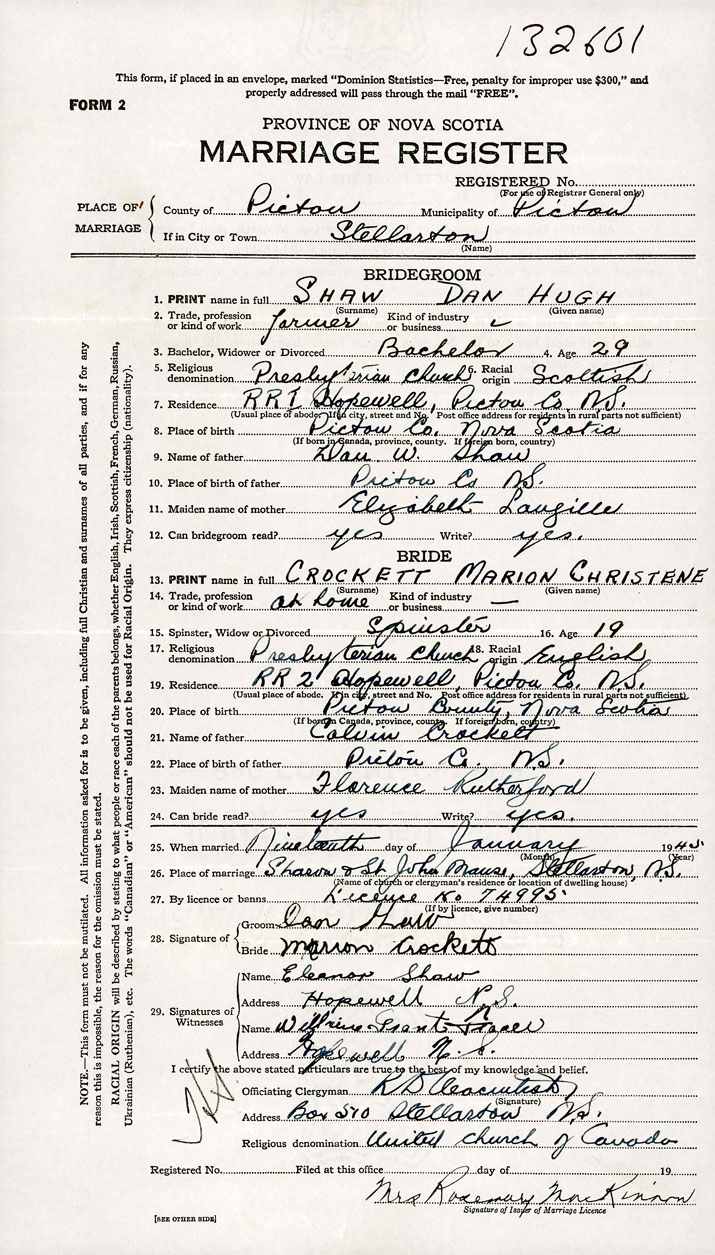 132601
This form, if placed in an envelope, marked "Dominion Statistics—Free, penalty for improper use $300," and
properly addressed will pass through the mail "FREE".
FORM 2
PROVINCE OF NOVA SCOTIA
MARRIAGE REGISTER
REGISTERED No.
(For use of Registrar General only)
PLACE OF MARRIAGE
County of Pictou Municipality of Pictou
If in City or Town Stellarton
(Name)
BRIDEGROOM
1. PRINT name in full SHAW DAN HUGH
(Surname) (Given name)
2. Trade, profession or kind of work farmer Kind of industry or business
3. Bachelor, Widower or Divorced Bachelor 4. Age 29
5. Religious denomination Presbyterian Church 6. Racial origin Scottish
7. Residence RR 1 Hopewell, Pictou Co. N.S.
(Usual place of abode. If in city, street and No. Post office address for residents in rural parts not sufficient)
8. Place of birth Pictou Co. Nova Scotia
(If born in Canada, province, county. If foreign born, country)
9. Name of father Dan W. Shaw
10. Place of birth of father Pictou Co N.S.
11. Maiden name of mother Elizabeth Langille
12. Can bridegroom read? yes Write? yes.
BRIDE
13. PRINT name in full CROCKETT MARION CHRISTENE
(Surname) (Given name)
14. Trade, profession or kind of work at home Kind of industry or business —
15. Spinster, Widow or Divorced Spinster 16. Age 19
17. Religious denomination Presbyterian Church 18. Racial origin English
19. Residence RR 2 Hopewell, Pictou Co. N.S.
(Usual place of abode. If in city, street and No. Post office address for residents in rural parts not sufficient)
20. Place of birth Pictou County, Nova Scotia
(If born in Canada, province, county. If foreign born, country)
21. Name of father Calvin Crockett
22. Place of birth of father Pictou Co. N.S.
23. Maiden name of mother Florence Rutherford
24. Can bride read? yes Write? yes.
25. When married Nineteenth day of January 1945
(Month) (Year)
26. Place of marriage Sharon & St John Manse, Stellarton, N.S.
(Name of church or clergyman's residence or location of dwelling house)
27. By licence or banns Licence No 74995
(If by licence, give number)
28. Signature of
Groom Dan Shaw
Bride Marion Crockett
29. Signatures of Witnesses
Name Eleanor Shaw
Address Hopewell N.S.
Name Grant
Address Hopewell N.S.
I certify the above stated particulars are true to the best of my knowledge and belief.
Officiating Clergyman
(Signature)
Address Box 570 Stellarton N.S.
Religious denomination United Church of Canada
Registered No. Filed at this office day of 19
Mrs Rosemary MacKinnon
Signature of Issuer of Marriage Licence
[SEE OTHER SIDE]
NOTE.—This form must not be mutilated. All information asked for is to be given, including full Christian and surnames of all parties, and if for any
reason this is impossible, the reason for the omission must be stated.
RACIAL ORIGIN will be described by stating to what people or race each of the parents belongs, whether English, Irish, Scottish, French, German, Russian,
Ukrainian (Ruthenian), etc. The words "Canadian" or "American" should not be used for Racial Origin. They express citizenship (nationality).